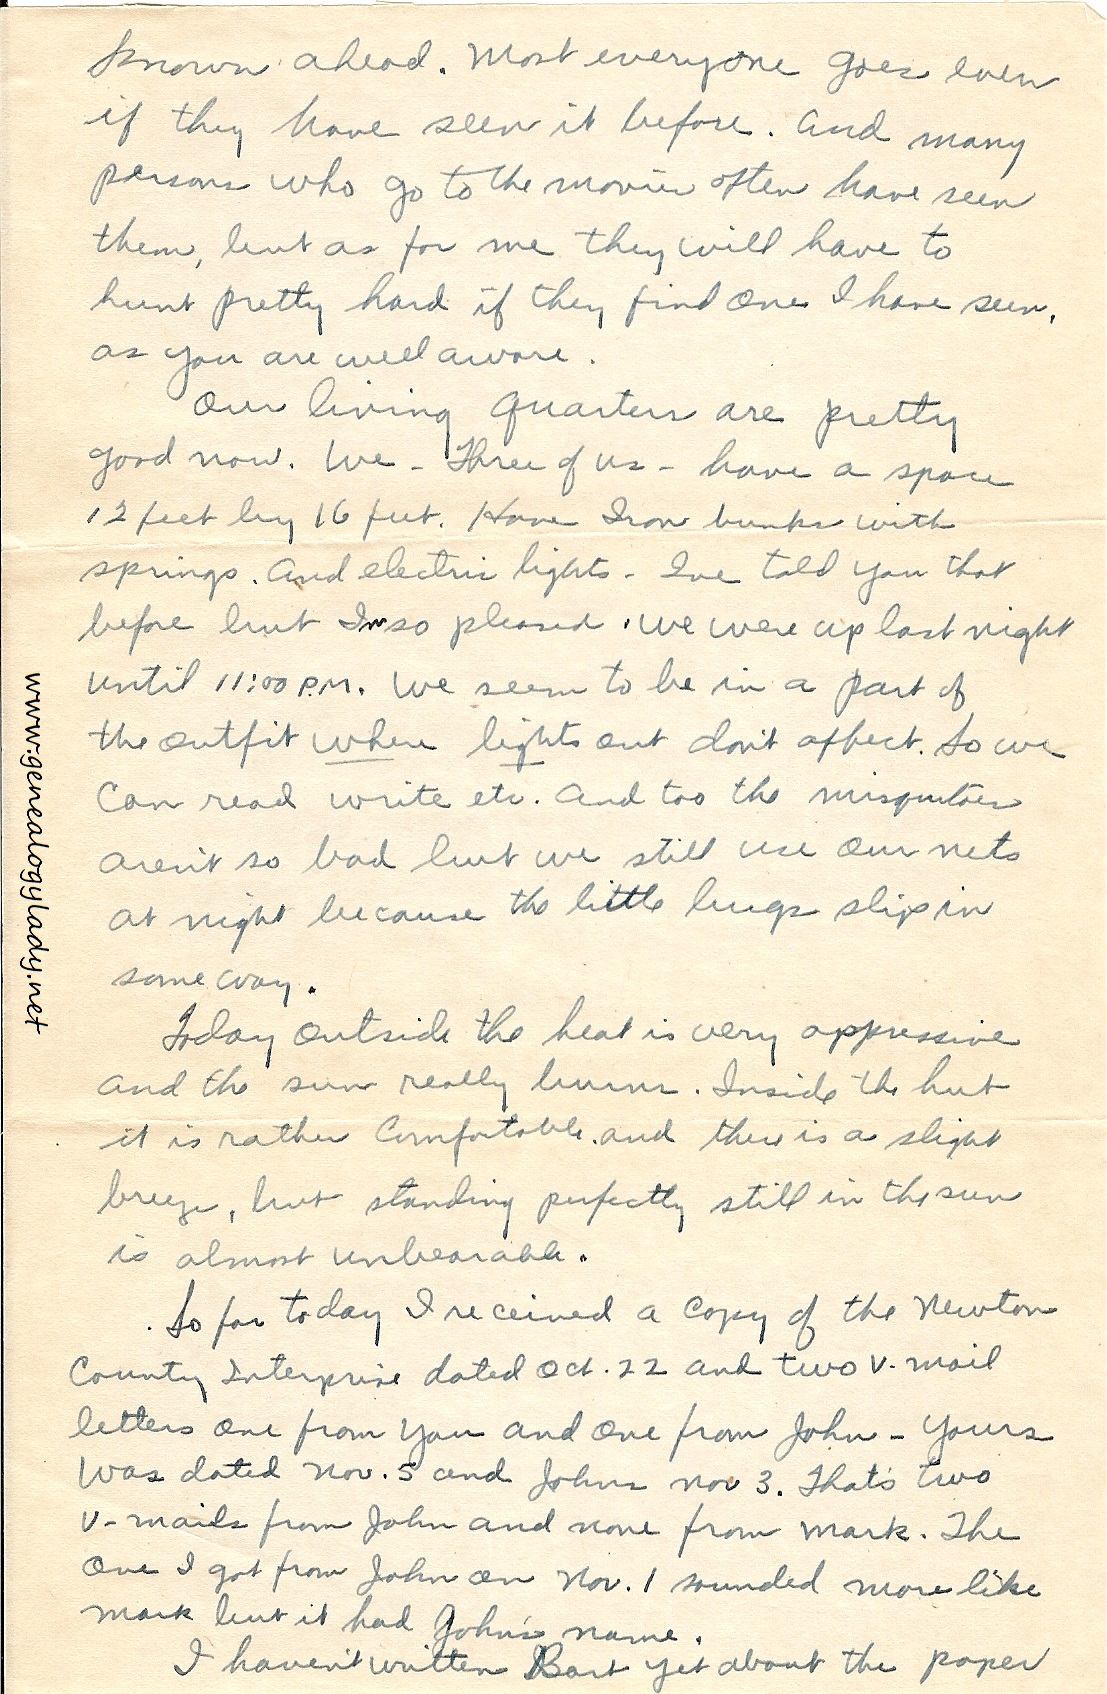 known ahead. Most everyone goes even
if they have seen it before. And many
persons who go to the movies often have seen
them, but as for me they will have to
hunt pretty hard if they find one I have seen,
as you are well aware.
Our living quarters are pretty
good now. We - Three of us - have a space
12 feet by 16 feet. Have Iron bunks with
springs. And electric lights - Ive told you that
before but Im so pleased. We were up last night
until 11:00 P.M. We seem to be in a part of
the outfit where lights out don't affect. So we
can read write etc. And too the misquitoes
aren't so bad but we still use our nets
at night because the little bugs slip in
some way.
Today outside the heat is very oppressive
and the sun really burns. Inside the hut
it is rather comfortable. and there is a slight
breeze, but standing perfectly still in the sun
is almost unbearable.
So far today I received a copy of the Newton
County Enterprise dated Oct. 22 and two V-mail
letters one from you and one from John - Yours
was dated Nov. 5 and Johns Nov 3. That's two
V-mails from John and none from Mark. The
one I got from John on Nov. 1 sounded more like
Mark but it had John's name.
I haven't written Bart yet about the paper
www.genealogylady.net